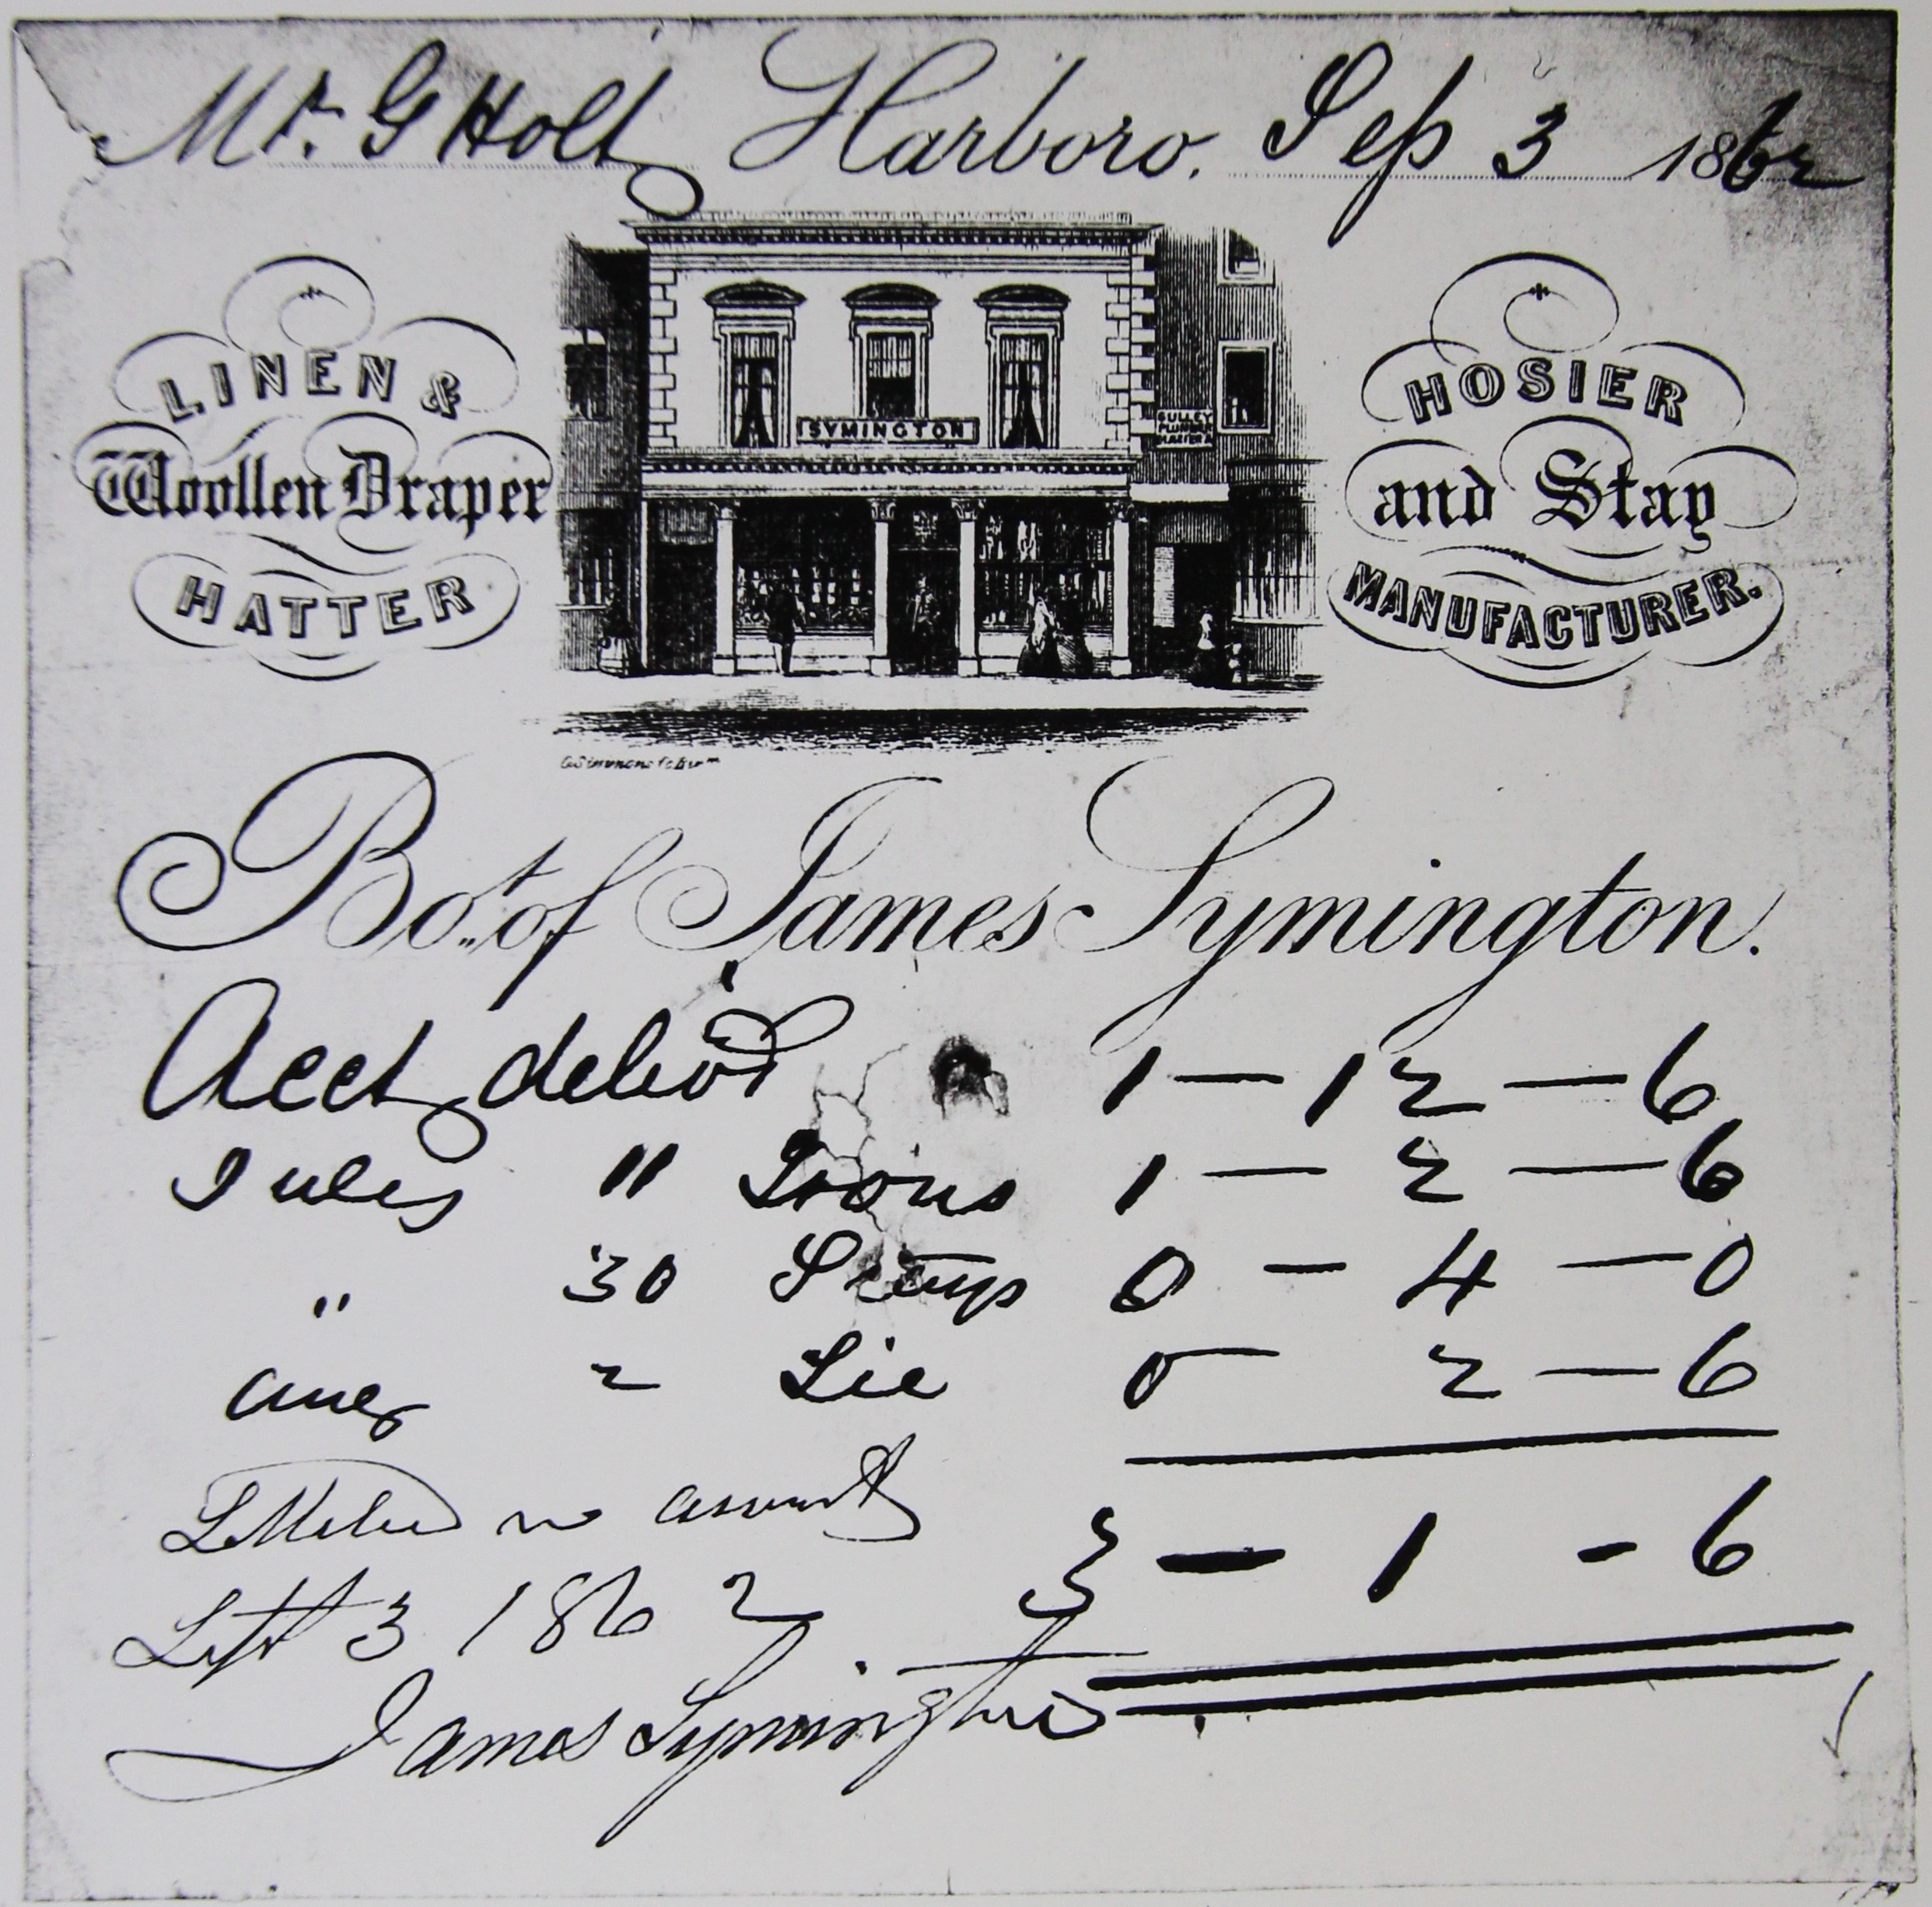 Mr. G Holt Harboro. Sep 3 1862
LINEN &
Woollen Draper
HATTER
SYMINGTON
GULLEY
PLUMBER
HOSIER
and Stay
MANUFACTURER.
Bot. of James Symington.
Acct delivd 1 — 12 — 6
July 11 Trous 1 — 2 — 6
" 30 0 — 4 — 0
Aug 2 Tie 0 — 2 — 6
Settled account
3 - 1 - 6
Sept 3 1862
James Symington